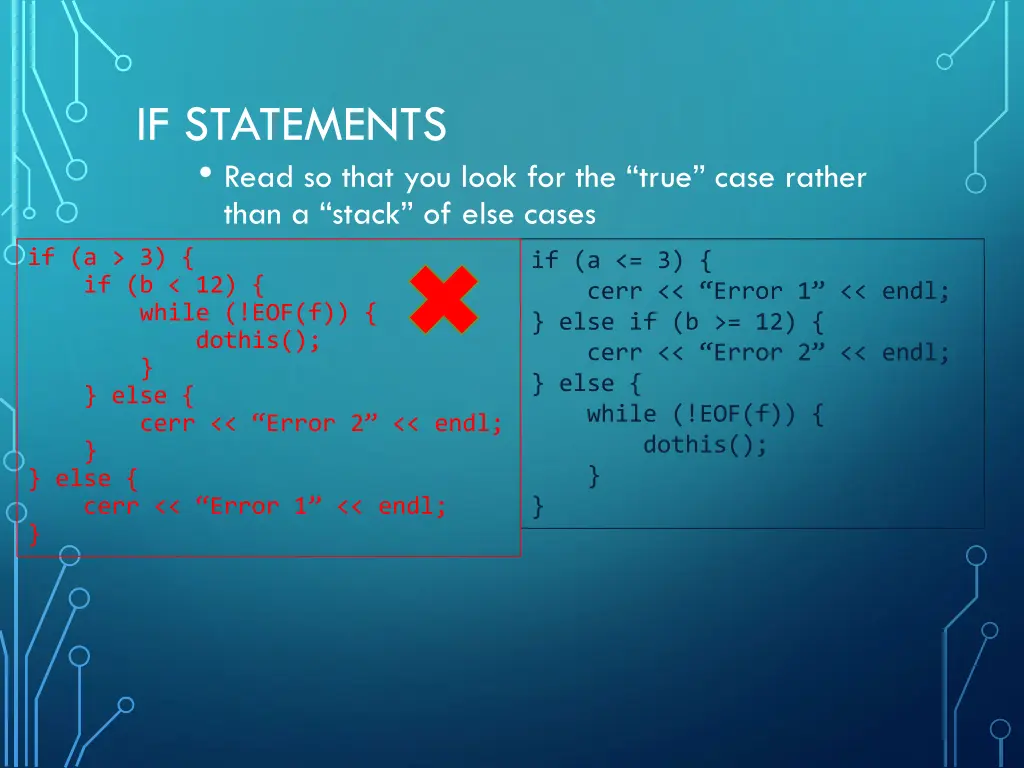 IF STATEMENTS
• Read so that you look for the “true” case rather
than a “stack” of else cases
if (a > 3) {
    if (b < 12) {
        while (!EOF(f)) {
            dothis();
        }
    } else {
        cerr << “Error 2” << endl;
    }
} else {
    cerr << “Error 1” << endl;
}
if (a <= 3) {
    cerr << “Error 1” << endl;
} else if (b >= 12) {
    cerr << “Error 2” << endl;
} else {
    while (!EOF(f)) {
        dothis();
    }
}